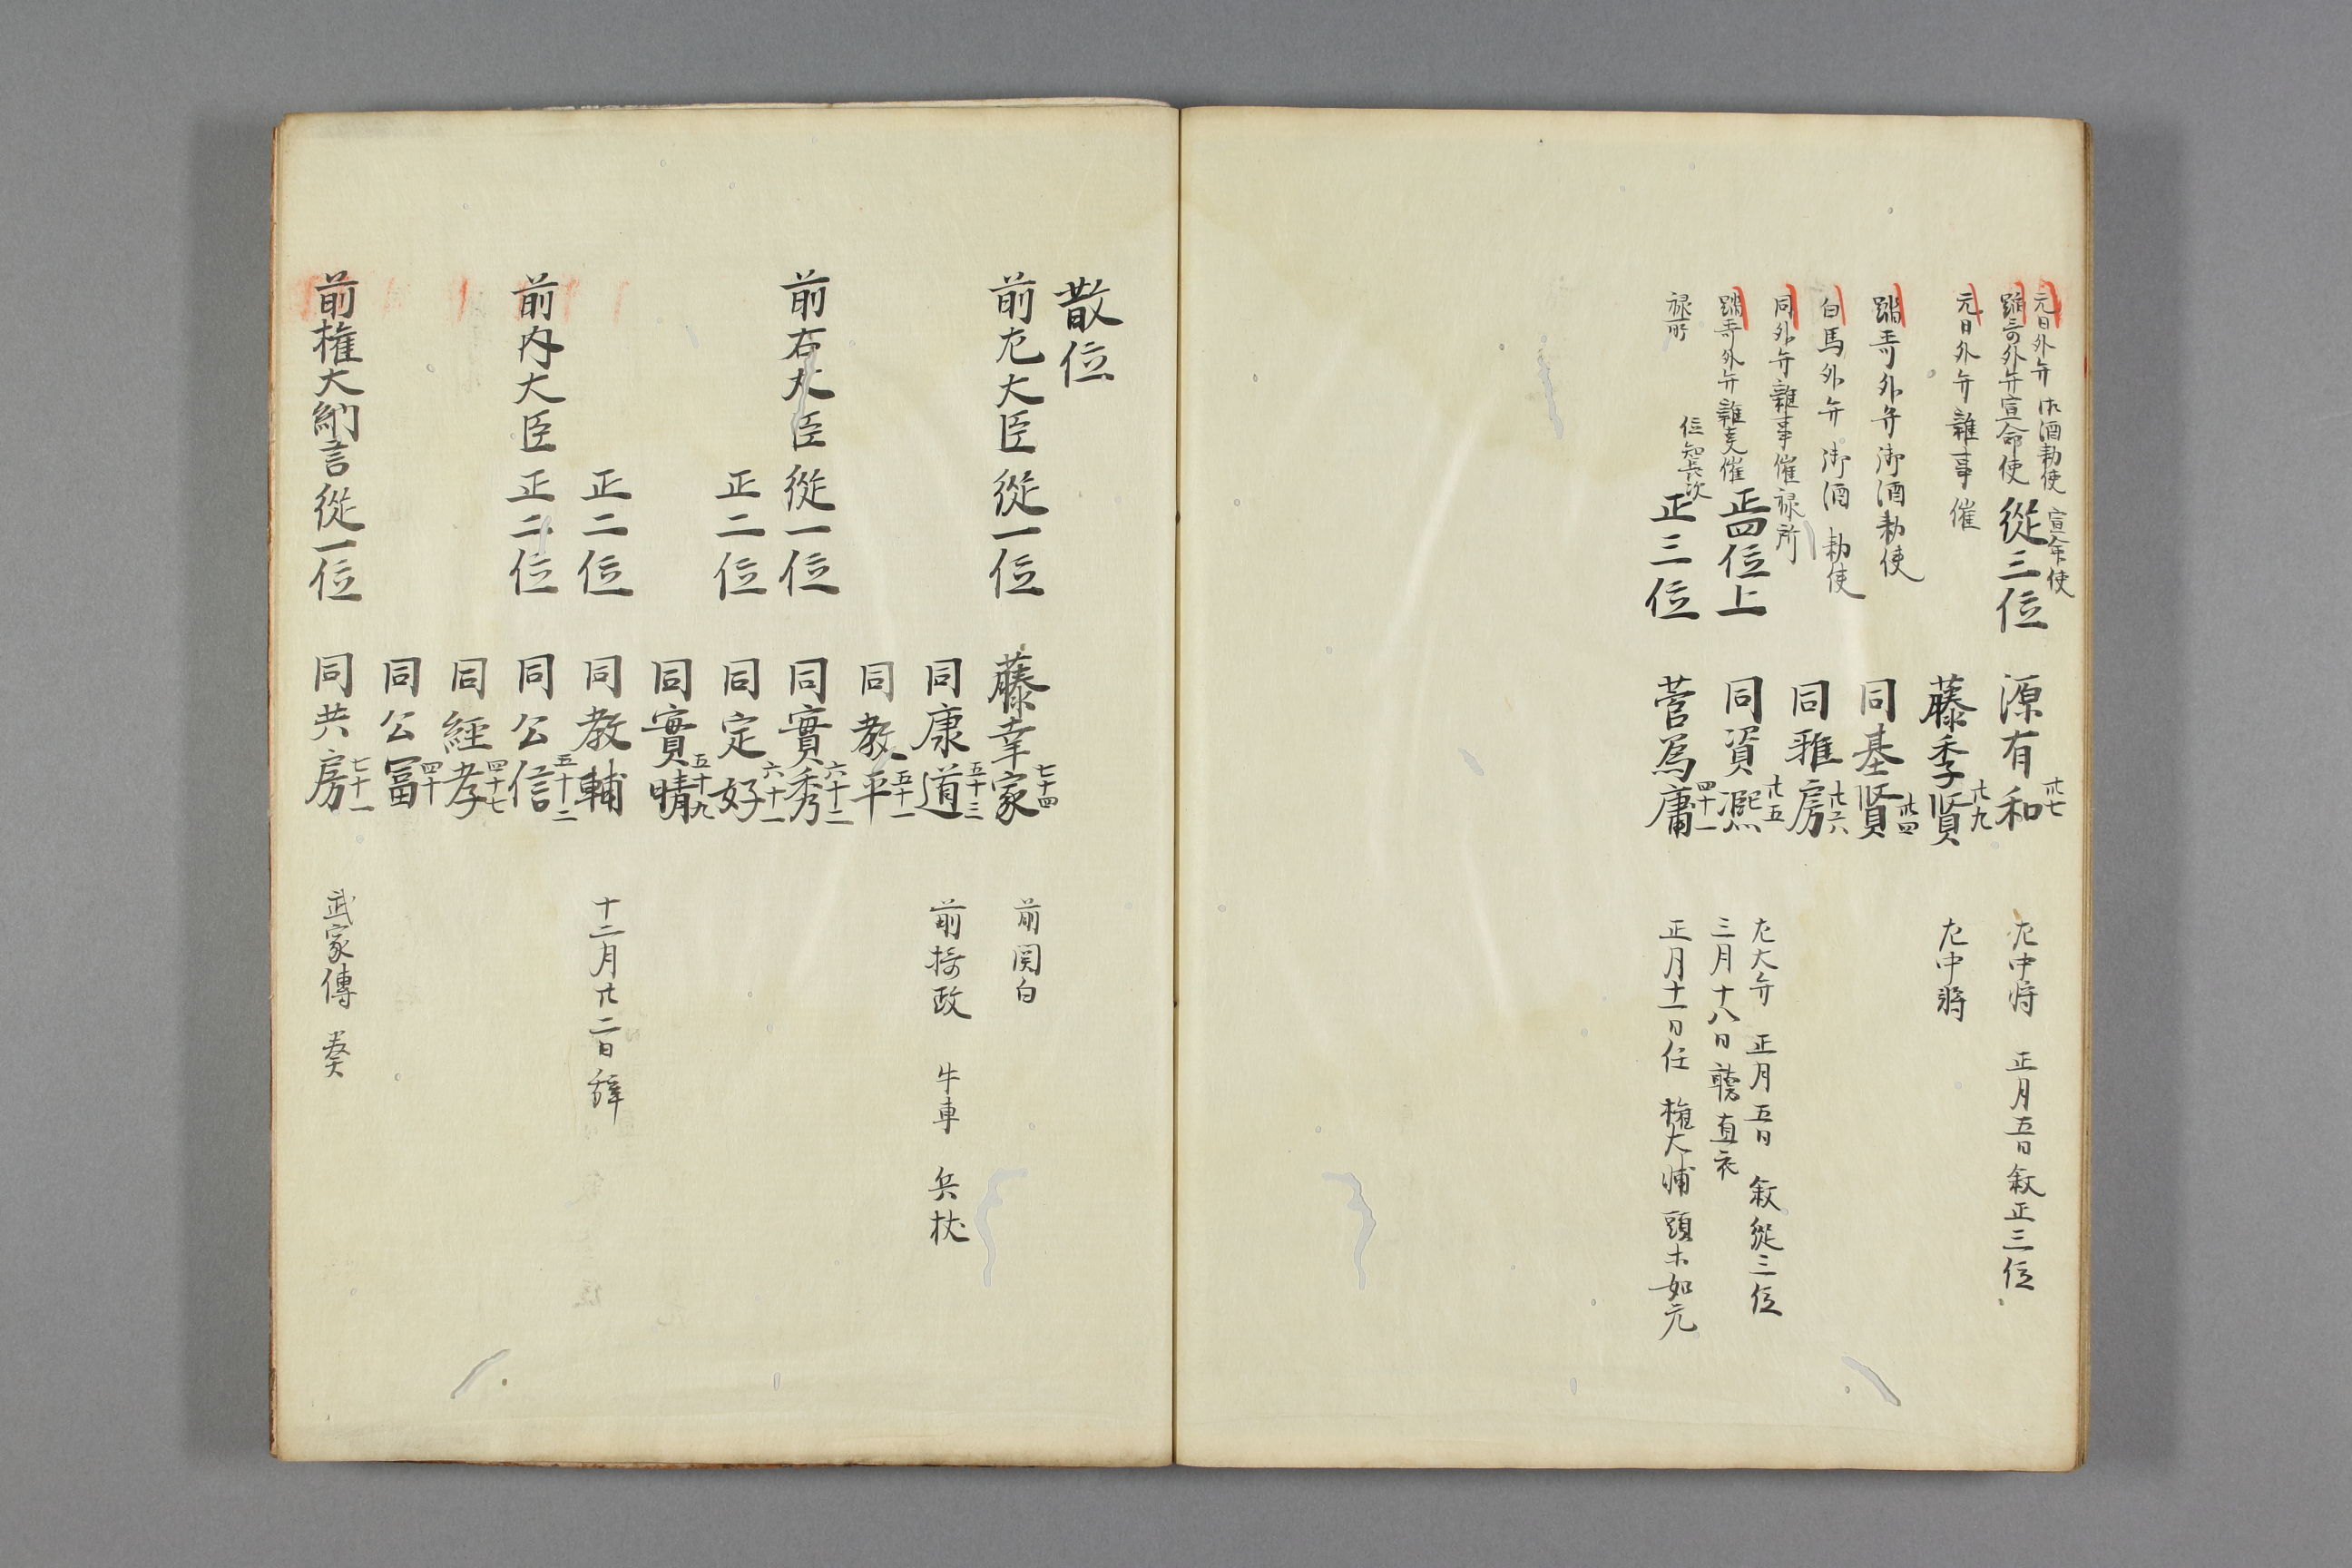 元日外弁 御酒勅使 宣命使
踏哥外弁宣命使 從三位 源有和 卅七 左中将 正月五日叙正三位
元日外弁 雜事催 藤季賢 廿九 左中将
踏哥外弁 御酒勅使 同基賢 卅四
白馬外弁 御酒勅使
同外弁雜事催禄所 同雅房 廿六
踏哥外弁雜事催 正四位上 同資凞 廿五 左大弁 正月五日 叙從三位
三月十八日 聴直衣
禄所 位
正三位 菅爲庸 四十一 正月十一日任 権大輔 頭木如元
散位
前左大臣 從一位 藤幸家 七十四 前関白
同康道 五十三 前摂政 牛車 兵杖
同教平 五十一
前右大臣 從一位 同實秀 六十二
正二位 同定好 六十一
同實晴 五十九
正二位 同教輔 十二月廿二日辞
前内大臣 正二位 同公信 五十二
同經孝 四十七
同公冨 四十
前権大納言 從一位 同共房 七十一 武家傳奏